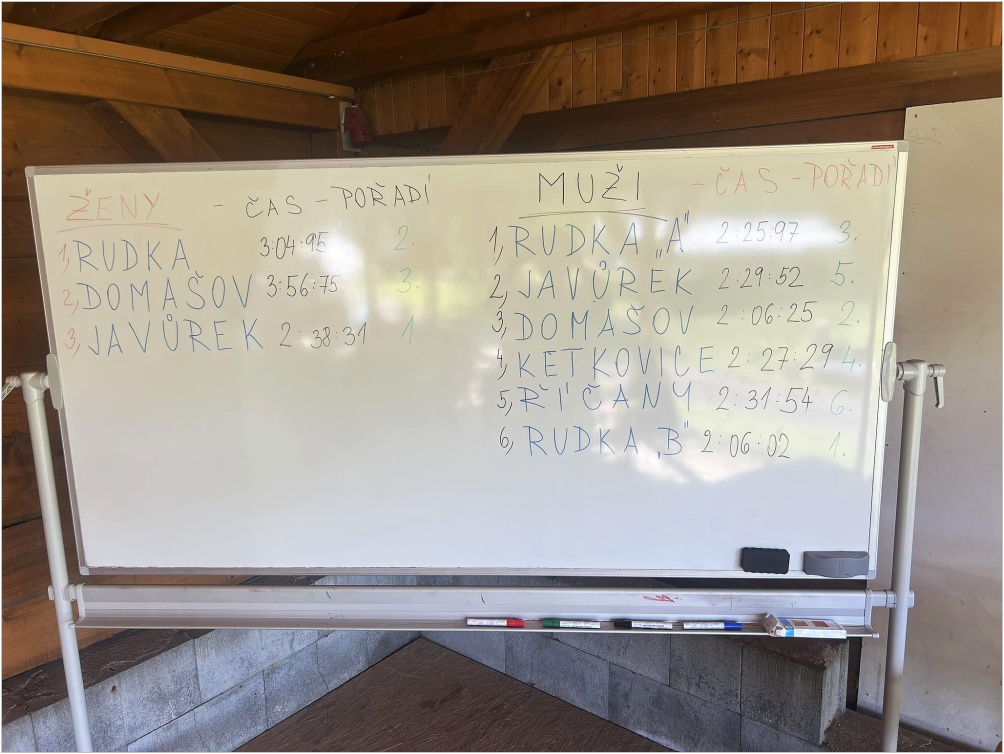 ŽENY - ČAS - POŘADÍ
1, RUDKA 3:04:95 2.
2, DOMAŠOV 3:56:75 3.
3, JAVŮREK 2:38:31 1.
MUŽI - ČAS - POŘADÍ
1, RUDKA „A" 2:25:97 3.
2, JAVŮREK 2:29:52 5.
3, DOMAŠOV 2:06:25 2.
4, KETKOVICE 2:27:29 4.
5, ŘÍČANY 2:31:54 6.
6, RUDKA „B" 2:06:02 1.